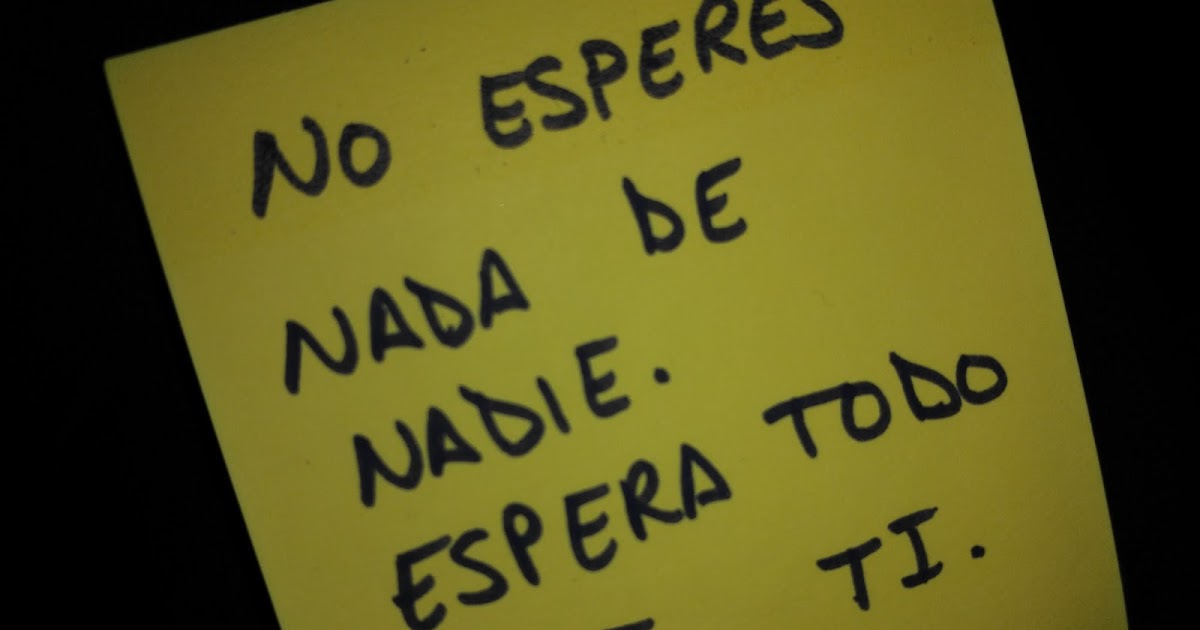 NO ESPERES
NADA DE
NADIE.
ESPERA TODO
TI.